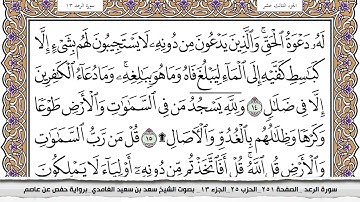 سورة الرعد ١٣
الجزء الثالث عشر
لَهُۥ دَعْوَةُ ٱلْحَقِّ ۖ وَٱلَّذِينَ يَدْعُونَ مِن دُونِهِۦ لَا يَسْتَجِيبُونَ لَهُم بِشَىْءٍ إِلَّا
كَبَٰسِطِ كَفَّيْهِ إِلَى ٱلْمَآءِ لِيَبْلُغَ فَاهُ وَمَا هُوَ بِبَٰلِغِهِۦ ۚ وَمَا دُعَآءُ ٱلْكَٰفِرِينَ
إِلَّا فِى ضَلَٰلٍ ١٤ وَلِلَّهِ يَسْجُدُ مَن فِى ٱلسَّمَٰوَٰتِ وَٱلْأَرْضِ طَوْعًا
وَكَرْهًا وَظِلَٰلُهُم بِٱلْغُدُوِّ وَٱلْءَاصَالِ ۩ ١٥ قُلْ مَن رَّبُّ ٱلسَّمَٰوَٰتِ
وَٱلْأَرْضِ قُلِ ٱللَّهُ ۚ قُلْ أَفَٱتَّخَذْتُم مِّن دُونِهِۦٓ أَوْلِيَآءَ لَا يَمْلِكُونَ
سورة الرعد _ الصفحة ٢٥١ _ الحزب ٢٥ _ الجزء ١٣ _ بصوت الشيخ سعد بن سعيد الغامدي _ برواية حفص عن عاصم